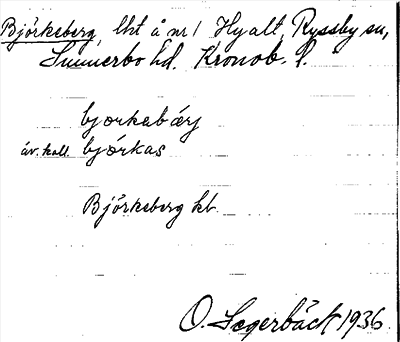 Björkeberg, lht å nr 1 Hyalt, Ryssby sn,
Sunnerbo hd. Kronob. l.
bjorkabærj
äv. kall. bjórkas
Björkeberg kt.
O. Segerbäck 1936.